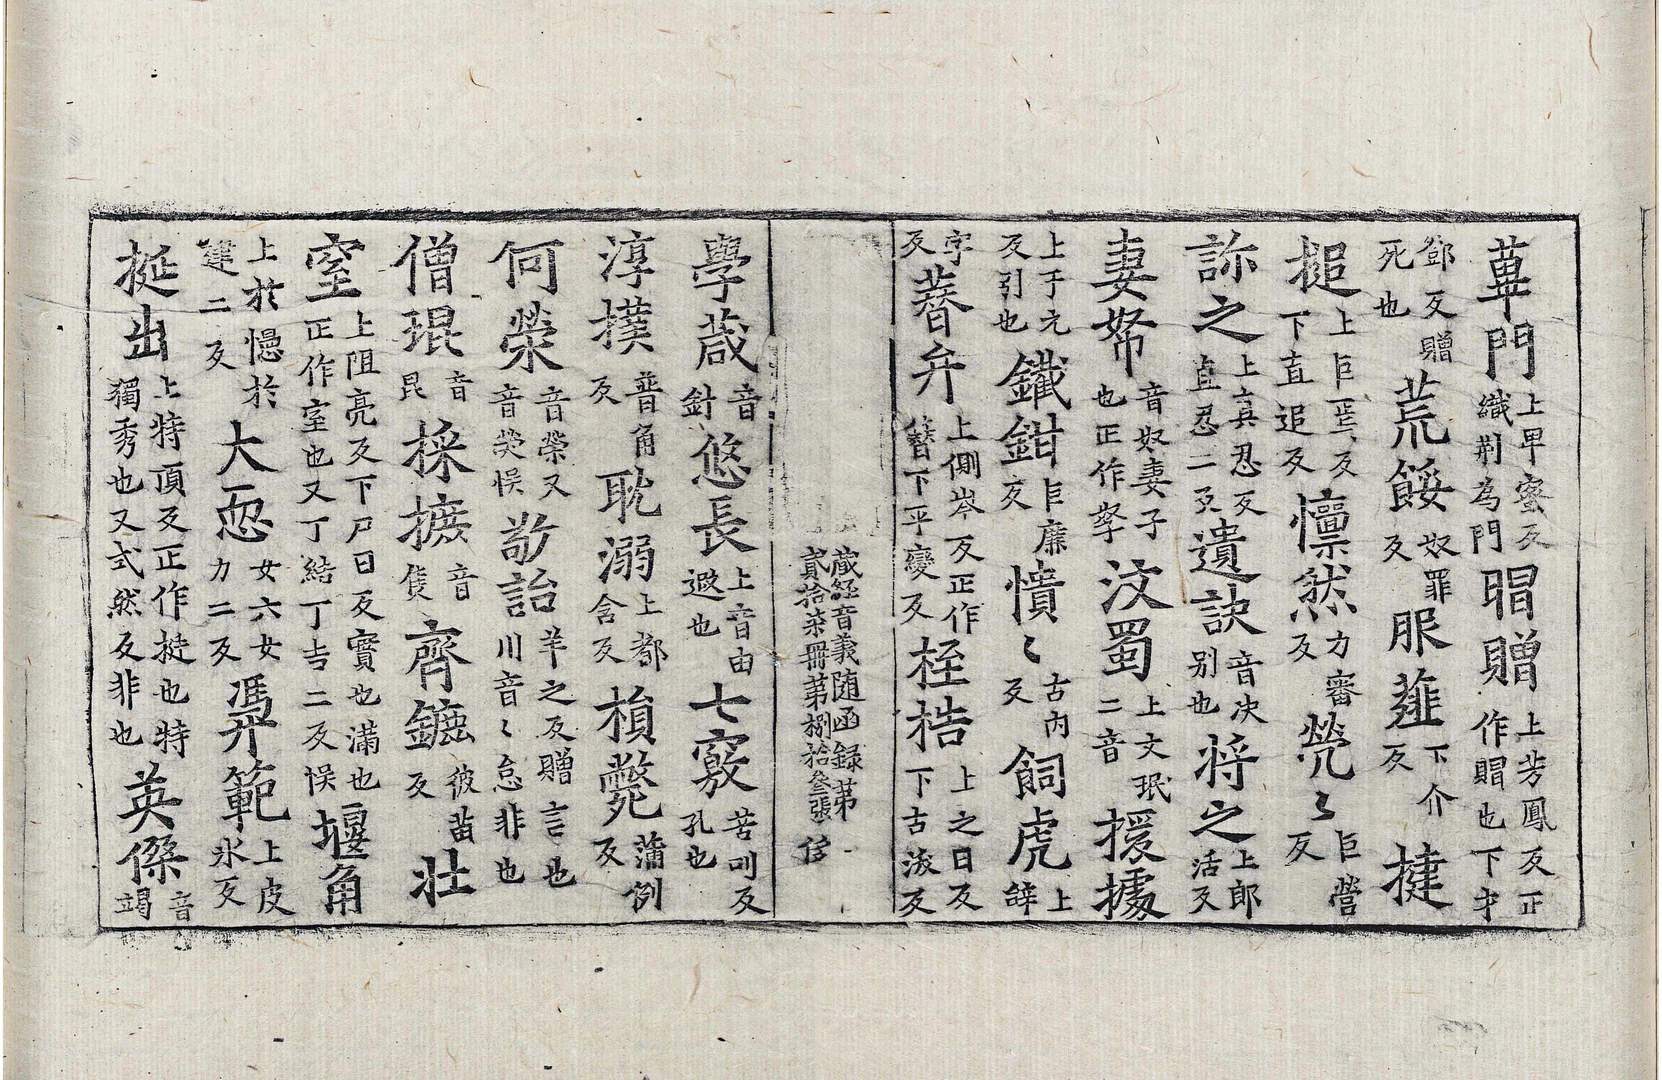 蓽門上卑蜜反織荆為門䀾贈上芳鳳反正作賵也下才
鄧反贈死也荒餧奴罪反服䪥下介反揵
搥上巨焉反下直追反懍然力審反煢〻巨營反
診之上真忍反直忍二反遺訣音决别也将之上郎活反
妻帑音奴妻子也正作孥汶蜀上文珉二音援據
上于元反引也鐵鉗巨廉反憒〻古内反飼虎上辝
字反簪弁上側岑反正作簪下平變反桎梏上之日反下古沃反
藏經音義随函録第貳拾柒冊第捌拾叁張
學葴音針悠長上音由遐也七竅苦叫反孔也
淳撲普角反耽溺上都含反殞斃蒲例反
何榮音榮又音熒悮敬詒羊之反贈言也川音〻怠非也
僧琨音昆採摭音隻齊鑣彼苗反壯
室上阻亮反下尸日反實也滿也正作室也又丁結丁吉二反悮堰角
上於憶於建二反大恧女六女力二反馮範上皮氷反
挻出上特頂反正作挺也特獨秀也又式然反非也英傑音竭